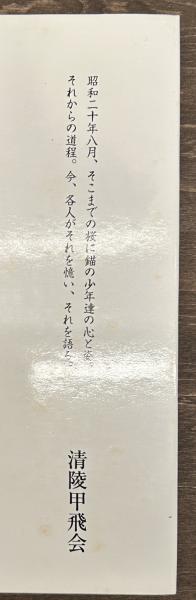 昭和二十年八月、そこまでの桜に錨の少年達の心と姿。
それからの道程。今、各人がそれを憶い、それを語る。
清陵甲飛会